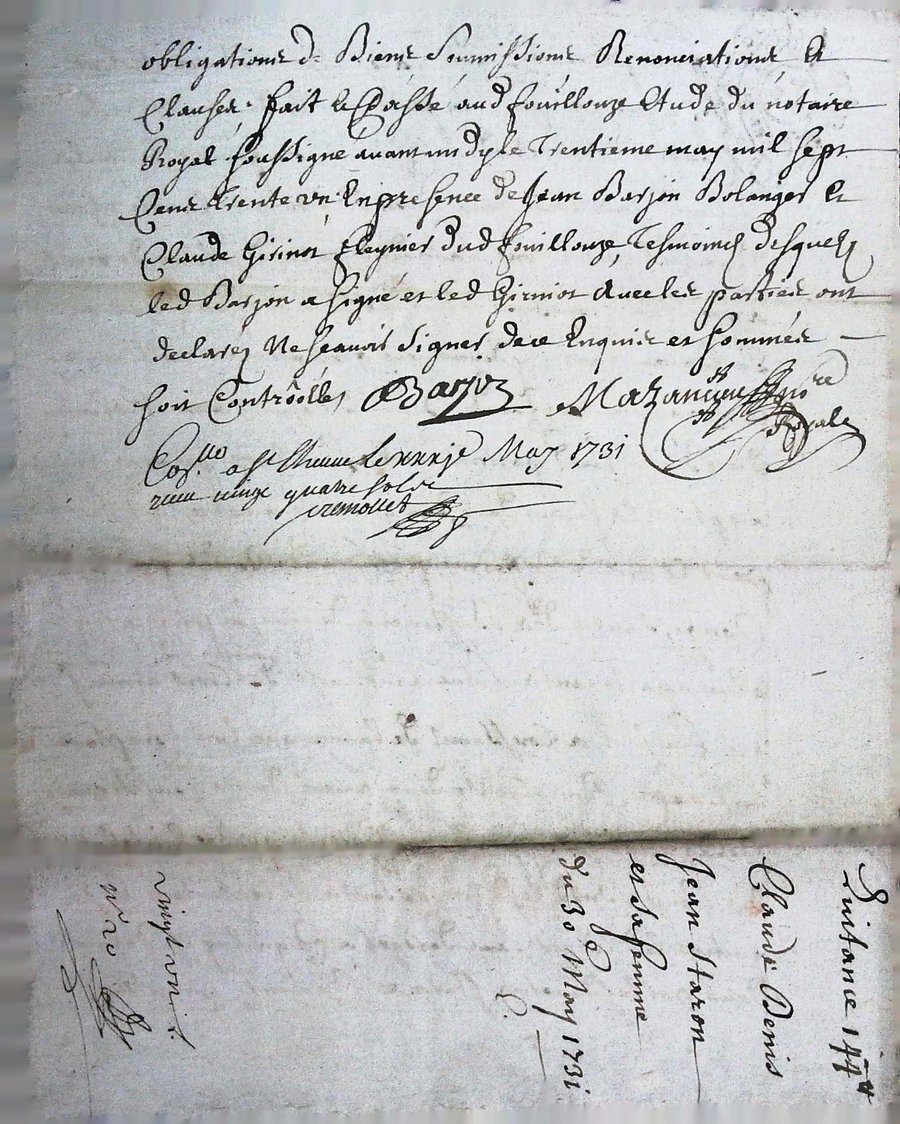 obligations de Biens Soumissions Renonciations Et
Clauses, fait et Passé aud fouillouze Etude du notaire
Royal soussigne avant midy le Trentieme may mil sept
Cens trente un En presence de Jean Barjon Bolanger Et
Claude Girinot dud fouillouze, Tesmoins desquels
led Barjon a signé et led Girinot Avec les parties ont
declarez Ne scavoir signer de ce Enquis et sommés
soit Controllé, Barjon Mazancieu
Royale
May 1731
vingt quatre sols
Quitance 144tt
Claude Denis
Jean Staron
et sa femme
du 30e May 1731
vingt un
n° 20